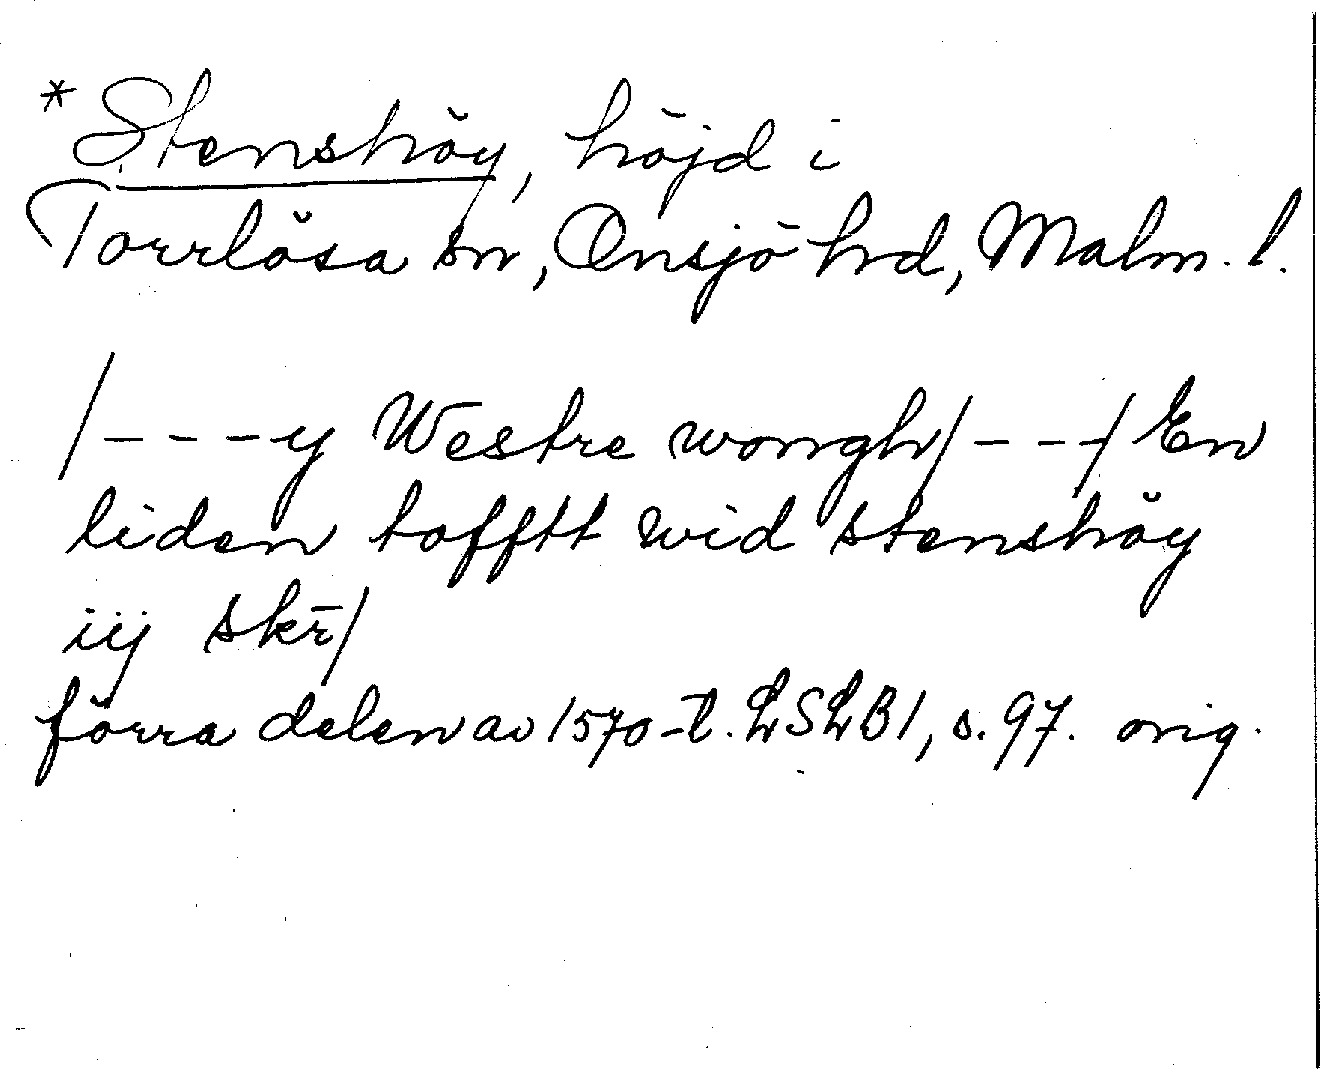 *Stenshöy, höjd i
Torrlösa sn, Onsjö hd, Malm. l.
/---y Westre wongh/---/ En
liden tofftt wid stenshöy
iij skr̄/
förra delen av 1570-t. LSLB1, s. 97. orig.